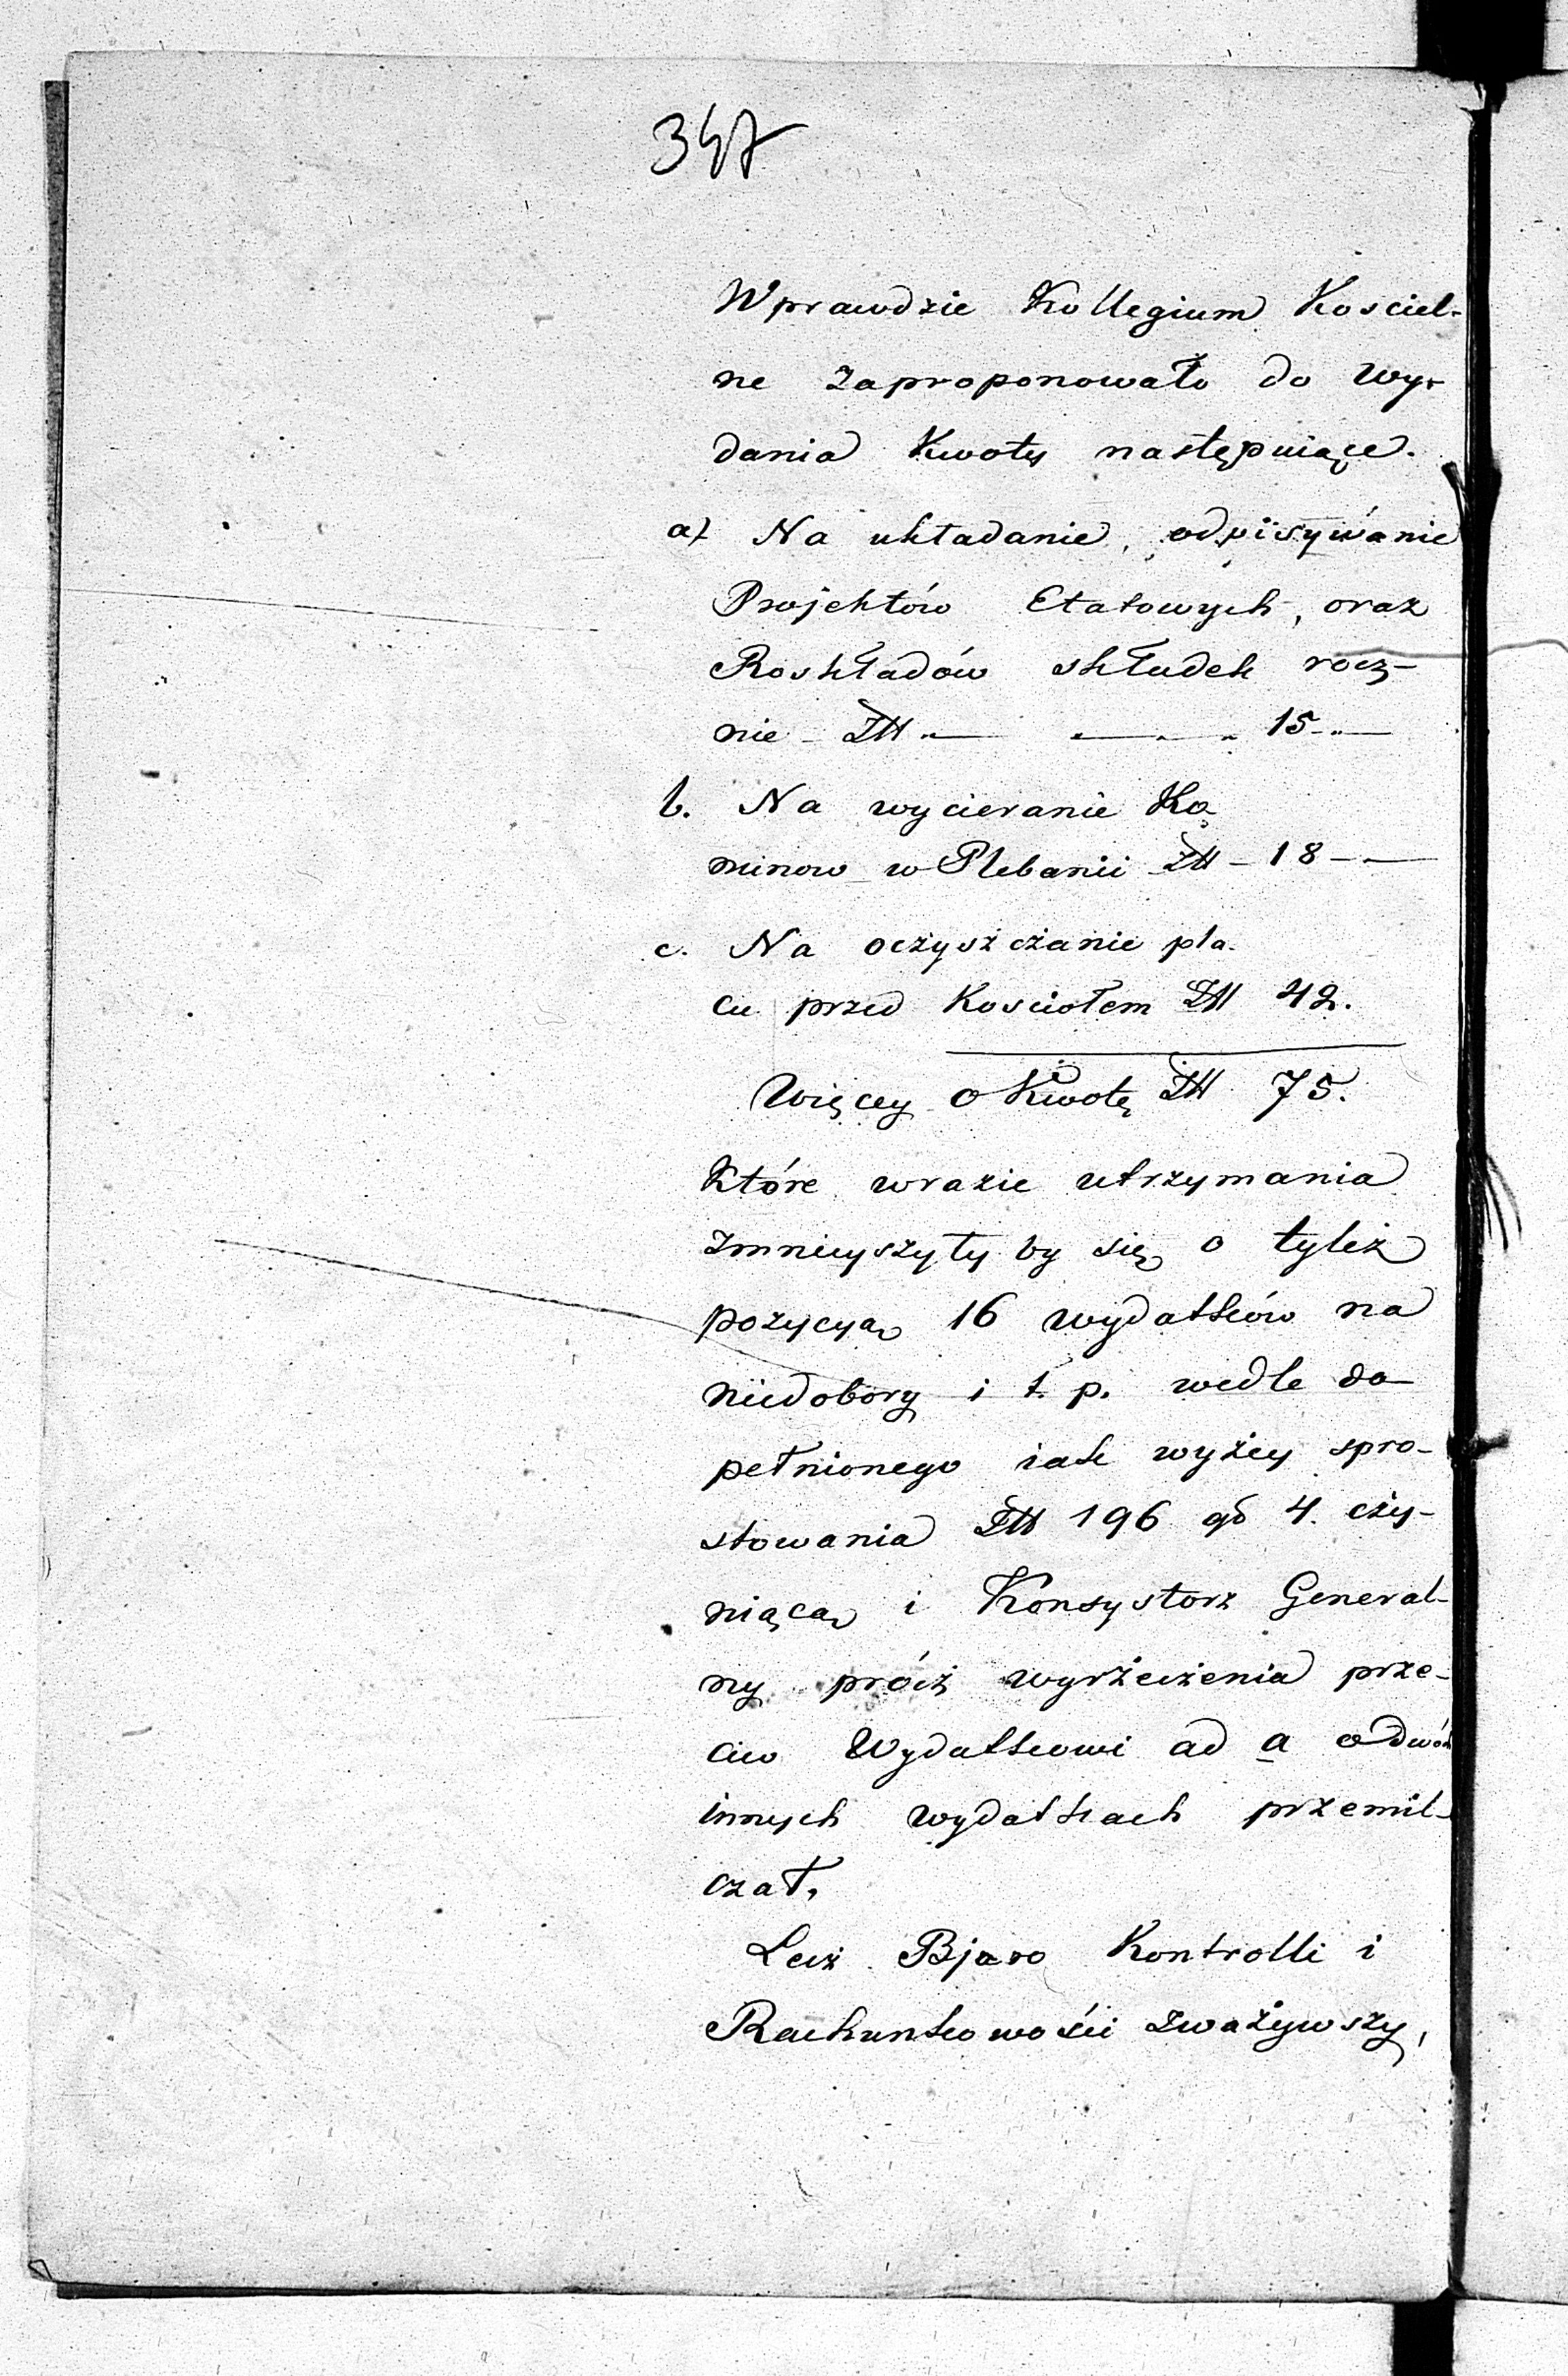 347
Wprawdzie Kollegium Kosciel-
ne zaproponowało do wy-
dania Kwoty następuiące.
a) Na układanie, odpisywanie
Projektów Etatowych, oraz
Roskładów składek rocz-
nie Złł 15
b. Na wycieranie Ko
minow w Plebanii Złł - 18 -
c. Na oczyszczanie pla-
cu przed Kosciołem Złł 42.
Więcey o Kwotę Złł 75.
Które wrazie utrzymania
zmnieyszyły by się o tyleż
pozycyą 16 wydatków na
niedobory i t. p. wedle do-
pełnionego iak wyżey spro-
stowania Złł 196 gó 4. czy-
niącą i Konsystorz General-
ny prócż wyrżeczenia prze-
ciw Wydatkowi ad a o dwóch
innych wydatkach przemil-
czał,
Lecz Bjuro Kontrolli i
Rachunkowości zważywszy,